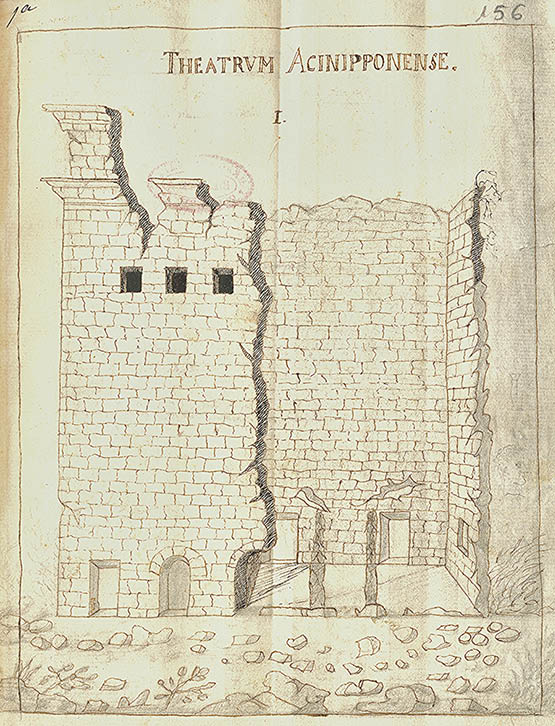 1a
156
THEATRVM ACINIPPONENSE.
I.